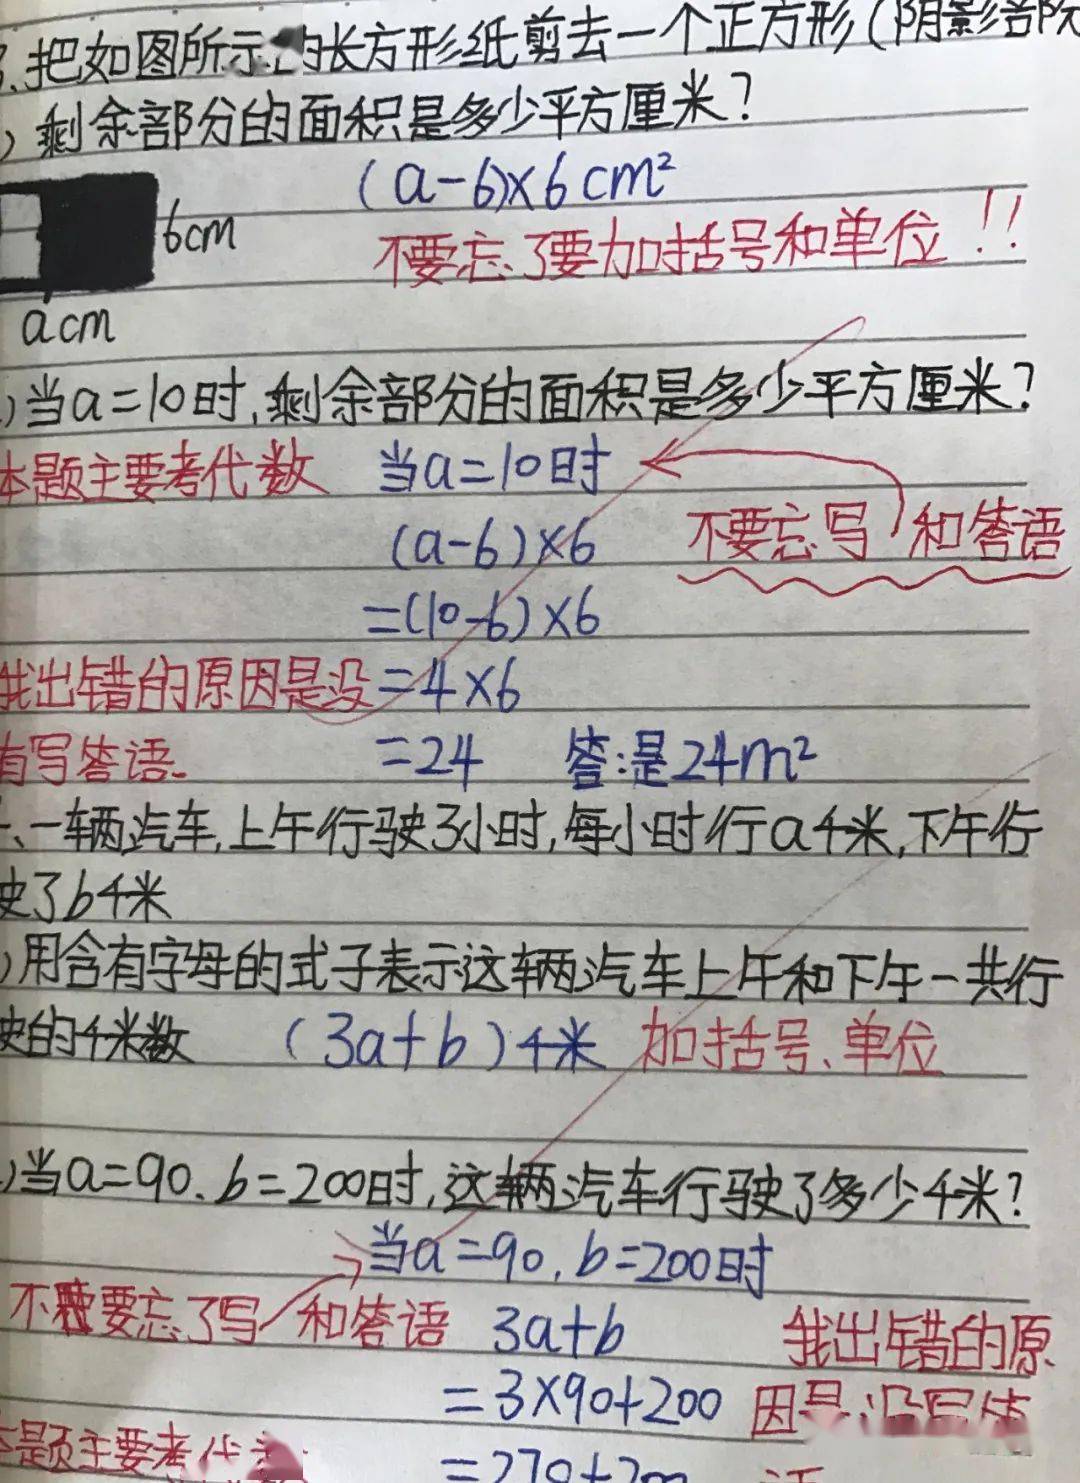 把如图所示的长方形纸剪去一个正方形(阴影部
)剩余部分的面积是多少平方厘米?
(a-6)×6cm²
6cm
不要忘了要加括号和单位!!
acm
)当a=10时,剩余部分的面积是多少平方厘米?
本题主要考代数 当a=10时
(a-6)×6
不要忘写 和答语
=(10-6)×6
我出错的原因是没 =4×6
有写答语. =24 答:是24m²
一辆汽车,上午行驶3小时,每小时行a千米,下午行
驶了b千米
)用含有字母的式子表示这辆汽车上午和下午一共行
驶的千米数 (3a+b)千米 加括号、单位
)当a=90、b=200时,这辆汽车行驶了多少千米?
当a=90、b=200时
不要忘了写 和答语 3a+b 我出错的原
=3×90+200 因是没写答
本题主要考代
=270+200 语